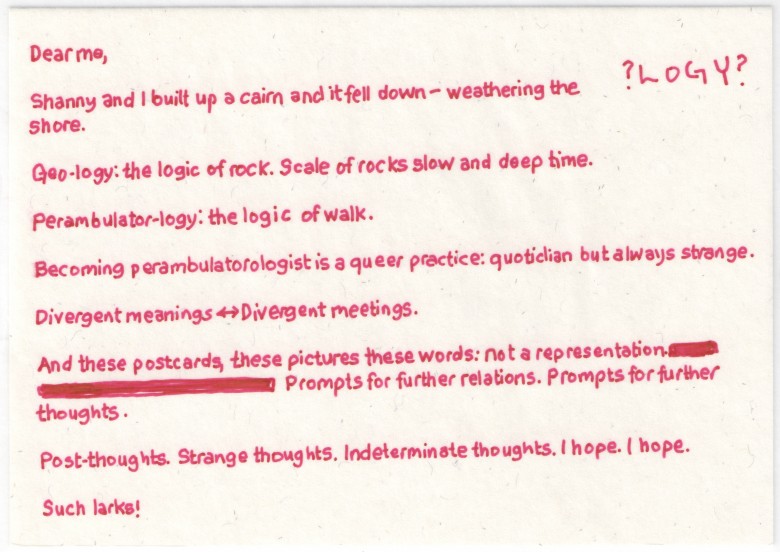 Dear me,
?LOGY?
Shanny and I built up a cairn and it fell down - weathering the
shore.
Geo-logy: the logic of rock. Scale of rocks slow and deep time.
Perambulator-logy: the logic of walk.
Becoming perambulatorologist is a queer practice: quotidian but always strange.
Divergent meanings ↔ Divergent meetings.
And these postcards, these pictures these words: not a representation.
Prompts for further relations. Prompts for further
thoughts.
Post-thoughts. Strange thoughts. Indeterminate thoughts. I hope. I hope.
Such larks!